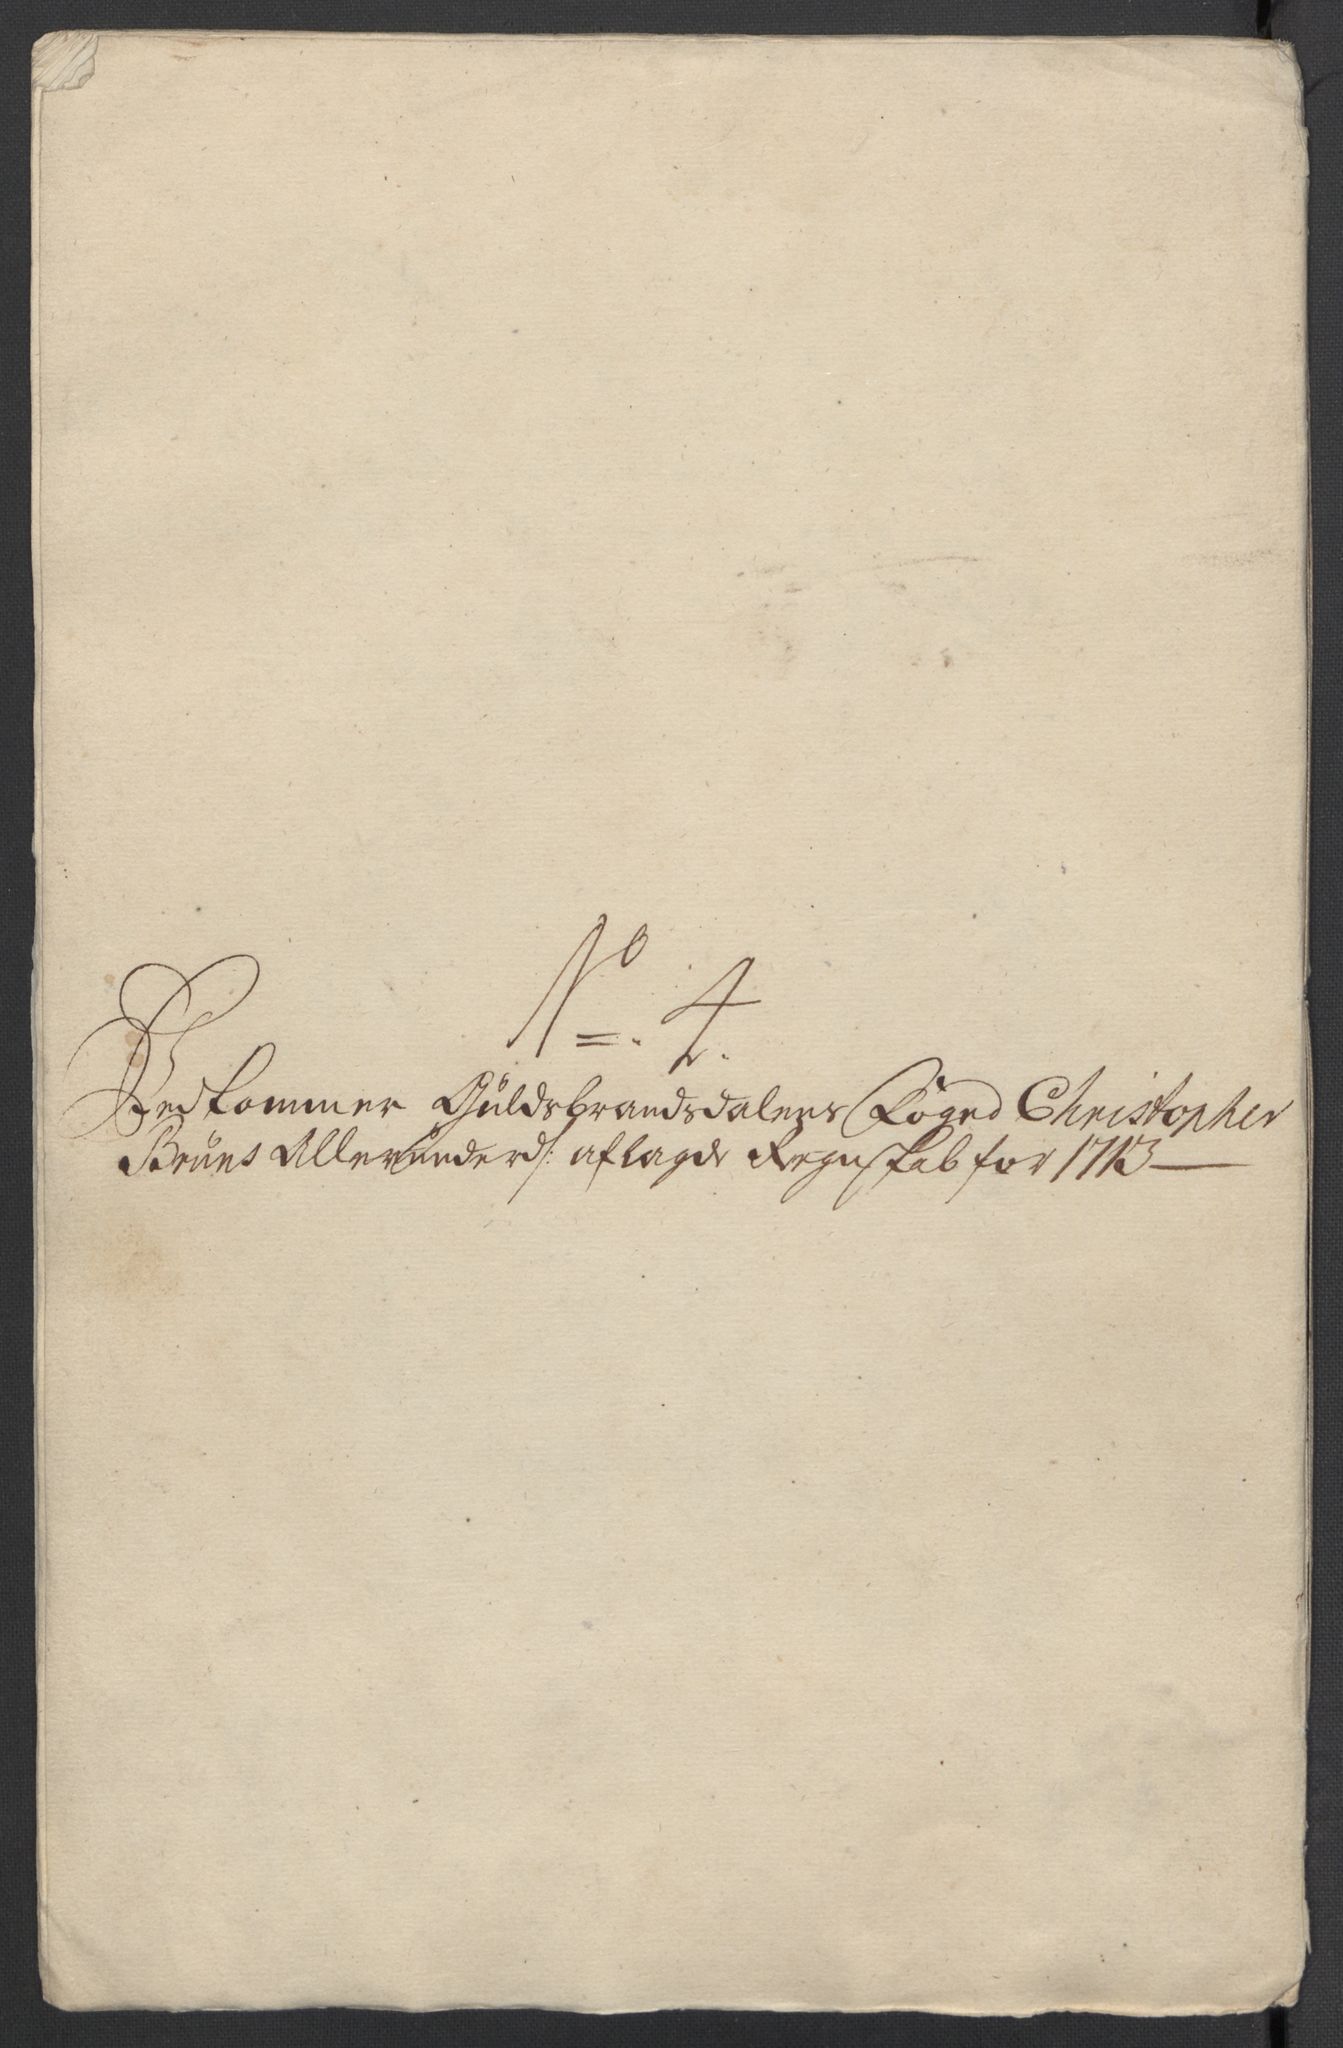 No. 4.
Vedkommer Guldsbrandsdalens Foged Christopher
Bruns Allerunderd: aflagde Regnskab for 1713